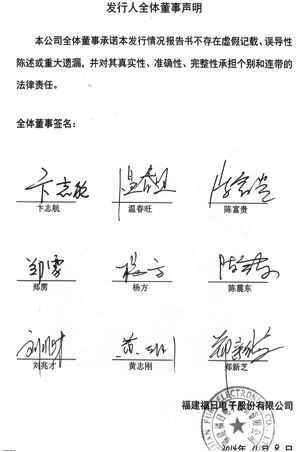 发行人全体董事声明
本公司全体董事承诺本发行情况报告书不存在虚假记载、误导性
陈述或重大遗漏，并对其真实性、准确性、完整性承担个别和连带的
法律责任。
全体董事签名：
卞志航 温春旺 陈富贵
郑雳 杨方 陈震东
刘兆才 黄志刚 郑新芝
福建福日电子股份有限公司